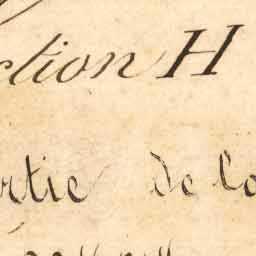 ction H
rtie de la